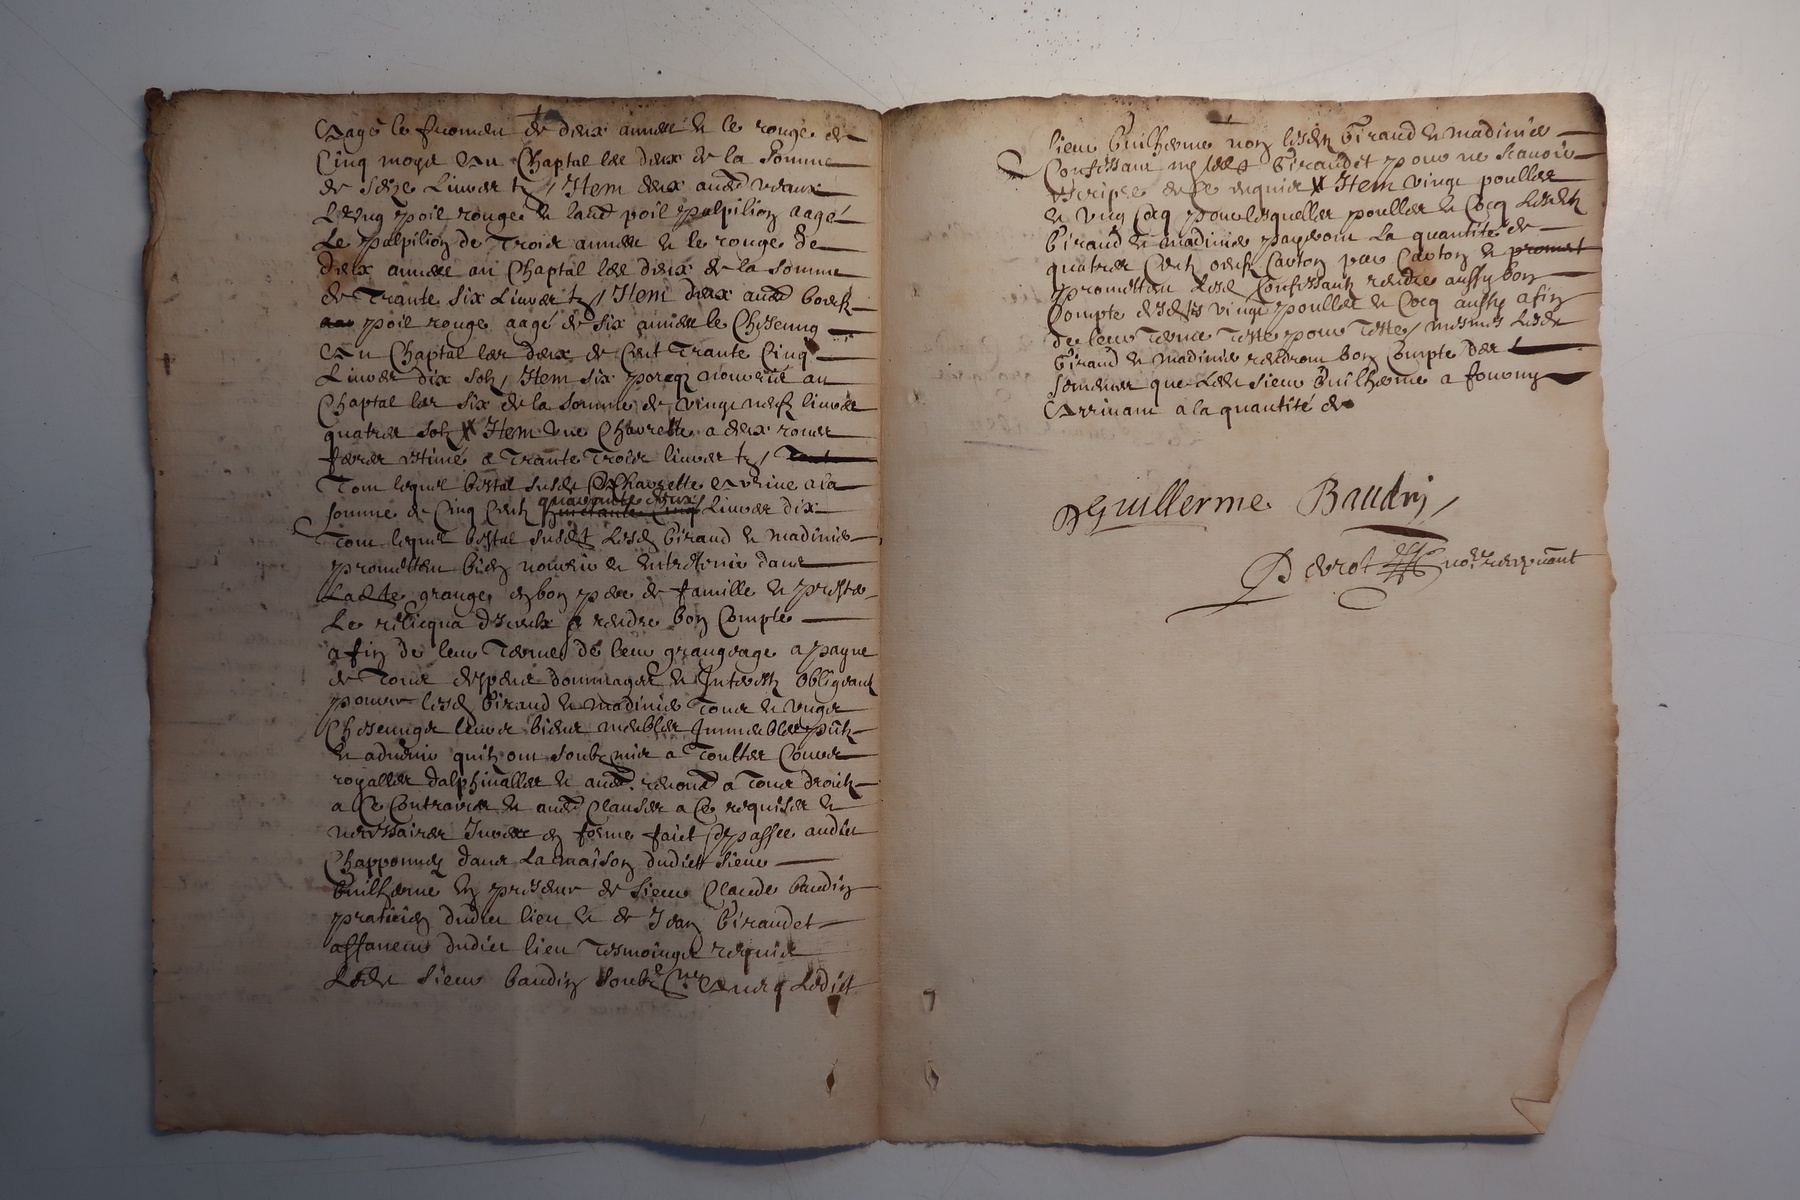 aagé le fromen de deux années & le rouge de
Cinq moys au Chaptal les deux de la somme
de seize Livres tz / Item deux aultres veaux
L'ung poil rouge & laultre poil palpilion aagé
Le palpilion de Trois années & le rouge de
deux années au Chaptal les deux de la somme
de Trante six Livres tz / Item deux aultres boeufz
poil rouge aagé de six années le Chescung
au Chaptal les deux de Cent Trante Cinq
Livres dix solz / Item six porcqz nourris au
Chaptal les six de la somme de vingt neuf livres
quatre solz Item une Charrette a deux roues
ferres estimé a Trante Trois livres tz /
Tout lequel bestal susdit & Charrette revient a la
somme de Cinq Centz quarante deux Livres dix
Tout lequel bestal susdit Lesdz Giraud & madinie
promettent bien nourir & entretenir dans
Ladte grange en bon pere de famille &
Le relicqua d'iceulx & rendre bon Compte
a fin de leur Terme de leur grangeage a payne
de Tous despens dommages & Interestz obligeant
pource lesdz Giraud & madinie Tous & ungs
Chescungs leurs biens meubles Immeubles pntz
& advenir quilz ont soubzmis a Touttes Cours
royalles dalphinalles & aultres. renoncé a Tous droictz
a Ce Contraires & aultres Clauses a Ce requises &
nessaires Juré en forme faict & passé audict
Chapponnay dans La maison dudict sieur
Guilherme en presence de sieur Claude baudin
praticien dudict lieu & de Jean Giraudet
affaneur dudict lieu Tesmoingz requis
Ledit sieur baudin soubz.ne avecq Ledict
sieur Guilherme non lesdz Giraud & madinie
Confessant ny ledt Giraudet pour ne scavoir
escripre de ce enquis Item vingt poulles
& ung Cocq pour lesquelles poulles & Cocq Lesdtz
Giraud & madinie payeront La quantité de
quatre Centz oeufz Carton pour Carton & promet
promettent Lesd Confessantz rendre aussy bon
Compte desdts vingt poulles & Cocq aussy a fin
de leur Terme Teste pour Teste / mesmes Lesdtz
Giraud & madinie rendront bon Compte des
semences que Ledt sieur Guilherme a fourny
arrivant a la quantité de
Guillerme Baudin
Derot nore recepvant